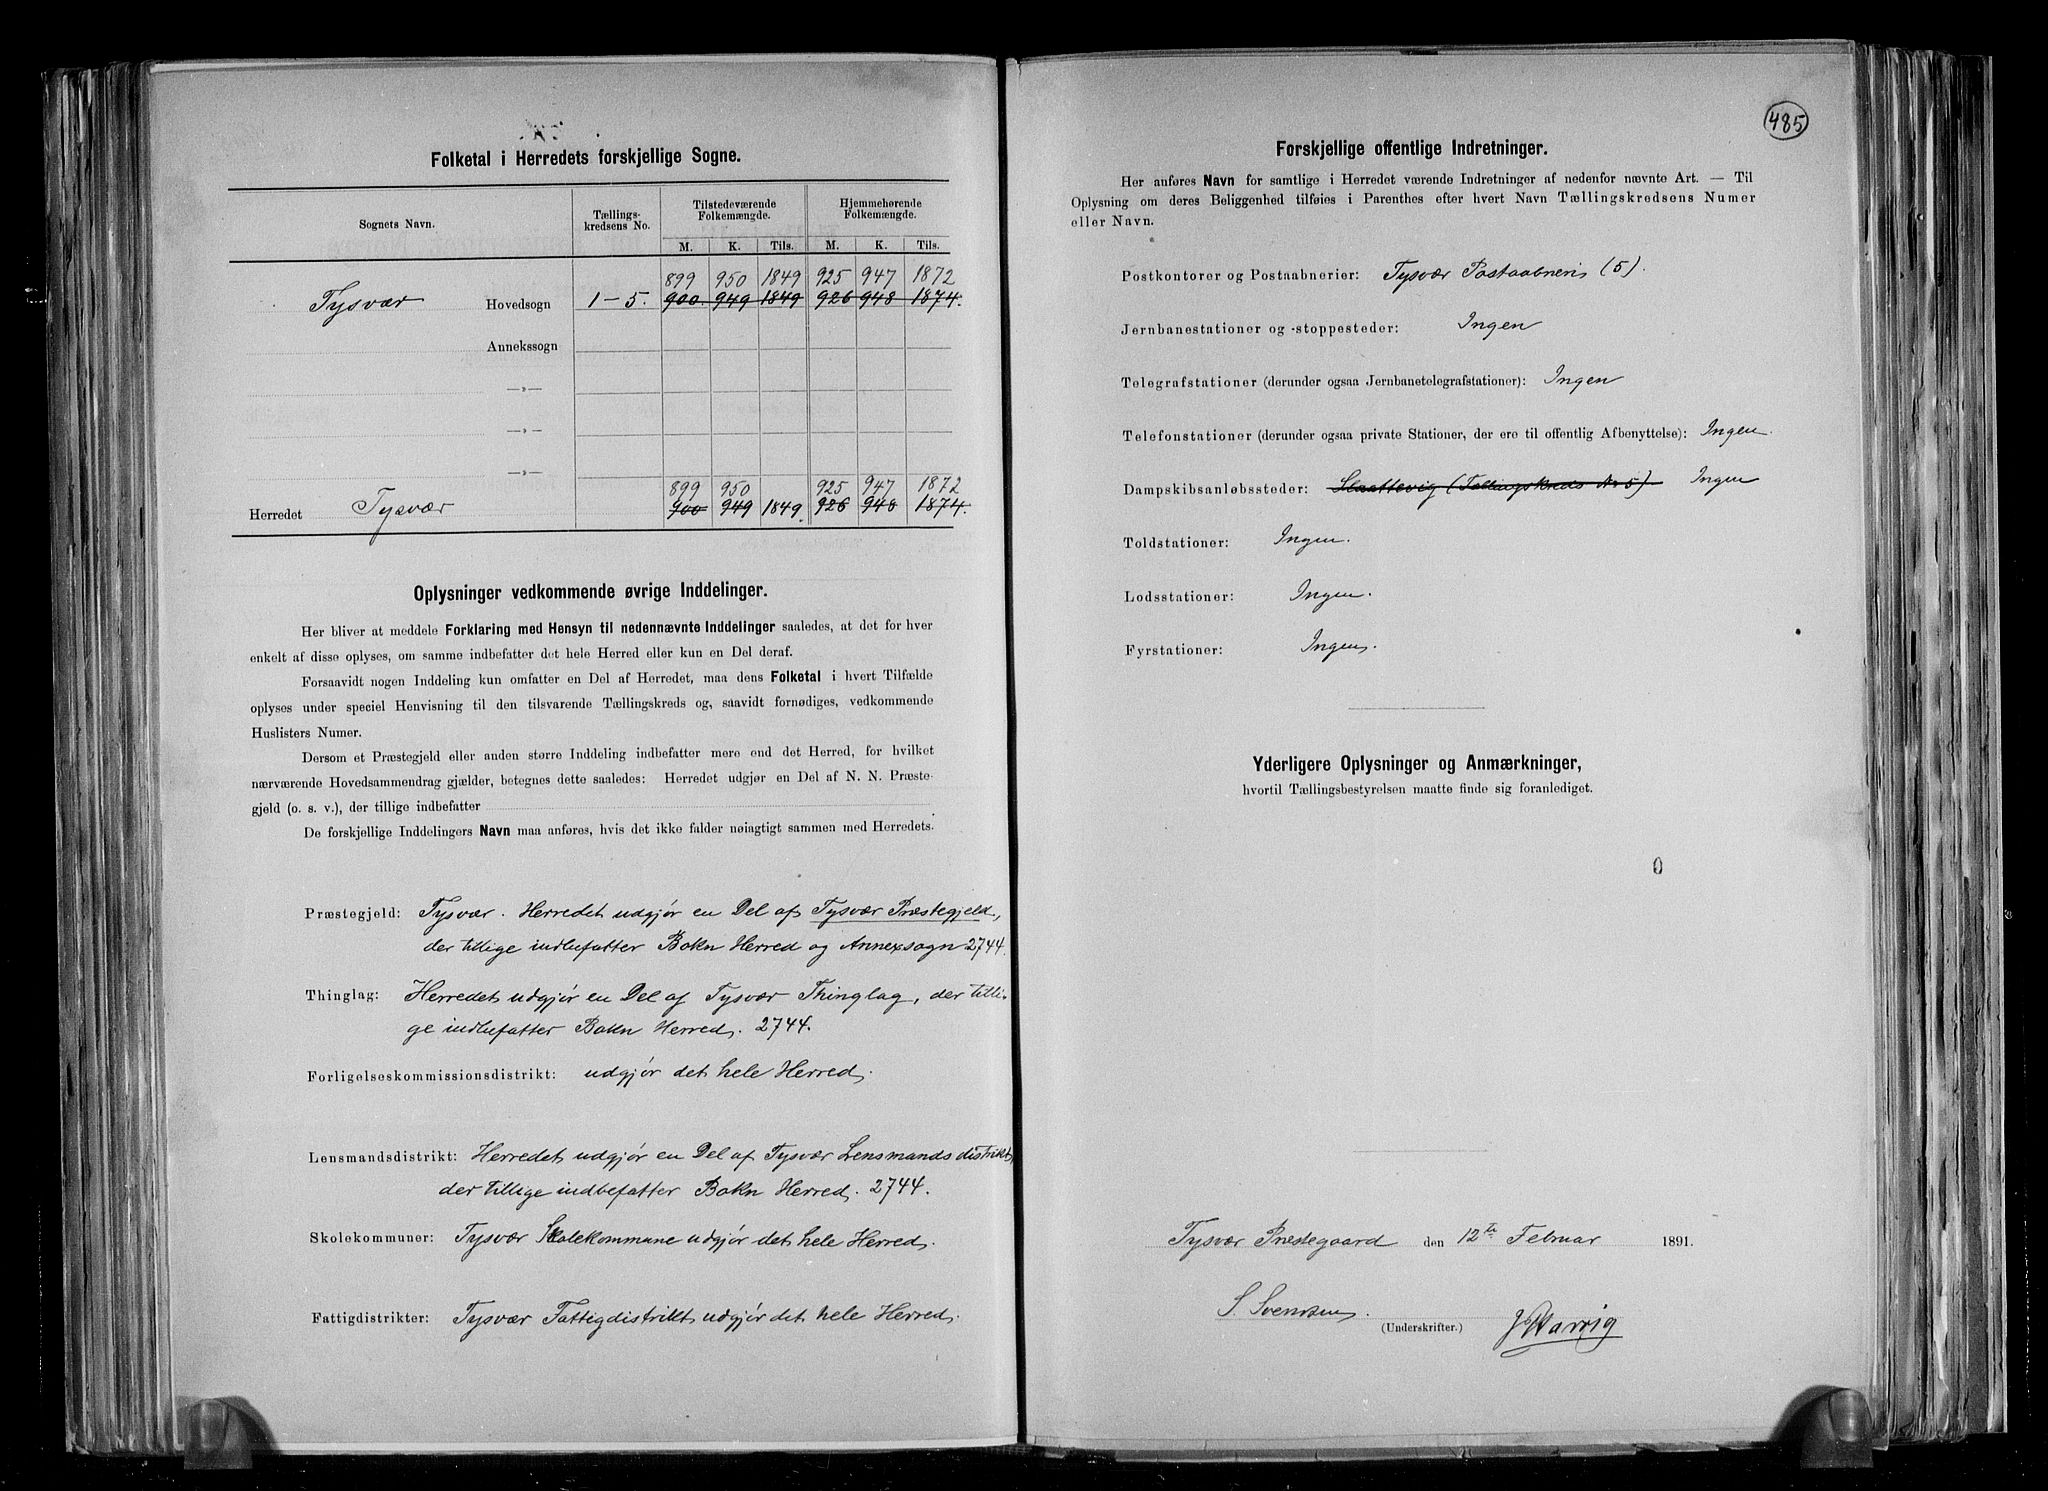 Folketal i Herredets forskjellige Sogne.
Sognets Navn. Tællings-kredsens No. Tilstedeværende Folkemængde. Hjemmehørende Folkemængde.
M. K. Tils. M. K. Tils.
899 950 1849 925 947 1872
Tysvær Hovedsogn 1-5. 900. 949 1849 926 948 1874.
Annekssogn
—„—
—„—
—„—
899 950 925 947 1872
Herredet Tysvær 900 949 1849. 926 948 1874.
Oplysninger vedkommende øvrige Inddelinger.
Her bliver at meddele Forklaring med Hensyn til nedennævnte Inddelinger saaledes, at det for hver
enkelt af disse oplyses, om samme indbefatter det hele Herred eller kun en Del deraf.
Forsaavidt nogen Inddeling kun omfatter en Del af Herredet, maa dens Folketal i hvert Tilfælde
oplyses under speciel Henvisning til den tilsvarende Tællingskreds og, saavidt fornødiges, vedkommende
Huslisters Numer.
Dersom et Præstegjeld eller anden større Inddeling indbefatter mere end det Herred, for hvilket
nærværende Hovedsammendrag gjælder, betegnes dette saaledes: Herredet udgjør en Del af N. N. Præste-
gjeld (o. s. v.), der tillige indbefatter
De forskjellige Inddelingers Navn maa anføres, hvis det ikke falder nøiagtigt sammen med Herredets.
Præstegjeld: Tysvær. Herredet udgjør en Del af Tysvær Præstegjeld,
der tillige indbefatter Bokn Herred og Annexsogn 2744.
Thinglag: Herredet udgjør en Del af Tysvær Thinglag, der tilli-
ge indbefatter Bokn Herred. 2744.
Forligelseskommissionsdistrikt: udgjør det hele Herred.
Lensmandsdistrikt: Herredet udgjør en Del af Tysvær Lensmandsdistrikt,
der tillige indbefatter Bokn Herred. 2744.
Skolekommuner: Tysvær Skolekommune udgjør det hele Herred.
Fattigdistrikter: Tysvær Fattigdistrikt udgjør det hele Herred.
485
Forskjellige offentlige Indretninger.
Her anføres Navn for samtlige i Herredet værende Indretninger af nedenfor nævnte Art. — Til
Oplysning om deres Beliggenhed tilføies i Parenthes efter hvert Navn Tællingskredsens Numer
eller Navn.
Postkontorer og Postaabnerier: Tysvær Postaabneri (5).
Jernbanestationer og -stoppesteder: Ingen
Telegrafstationer (derunder ogsaa Jernbanetelegrafstationer): Ingen
Telefonstationer (derunder ogsaa private Stationer, der ere til offentlig Afbenyttelse): Ingen.
Dampskibsanløbssteder: Slaattevig (Tællingskreds No 5) Ingen
Toldstationer: Ingen.
Lodsstationer: Ingen.
Fyrstationer: Ingen.
Yderligere Oplysninger og Anmærkninger,
hvortil Tællingsbestyrelsen maatte finde sig foranlediget.
0
Tysvær Præstegaard den 12te Februar 1891.
S. Svendsen.
(Underskrifter.)